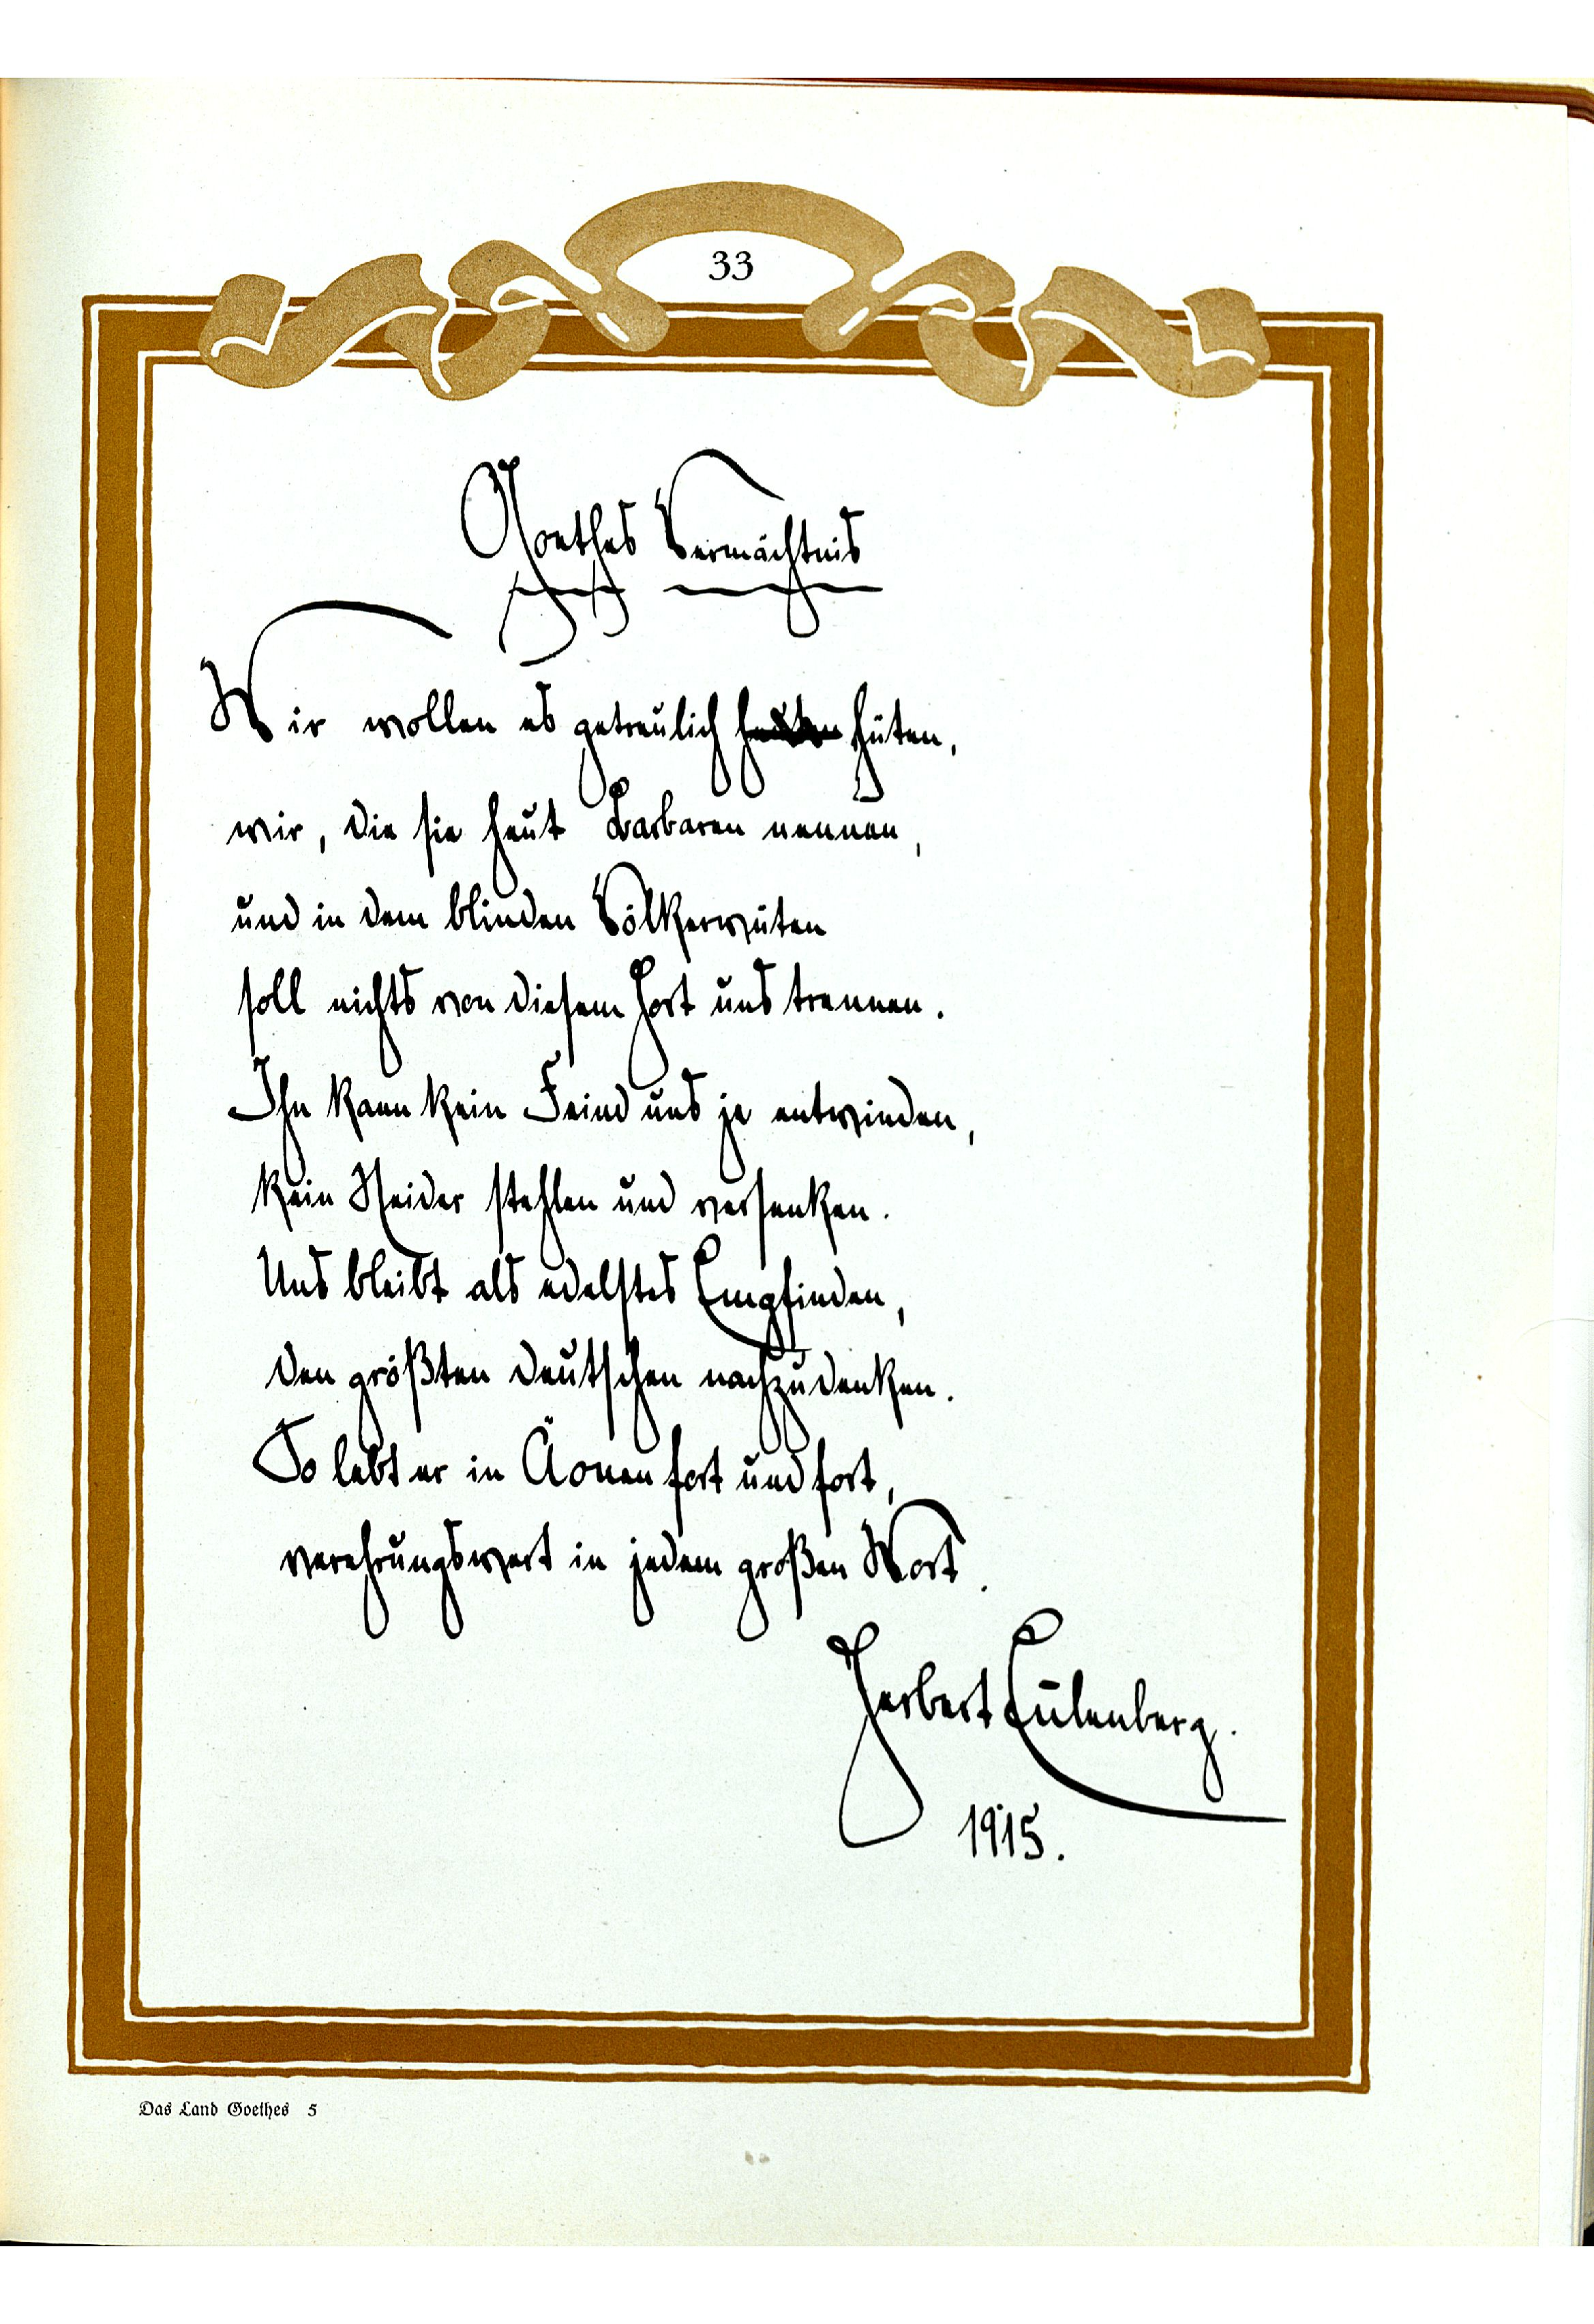 33
Goethes Vermächtnis
Wir wollen es getreulich hüten,
wir, die sie heut Barbaren nennen,
und in dem blinden Völkerwüten
soll nichts von diesem Hort uns trennen.
Ihn kann kein Feind uns je entwinden,
kein Neider stehlen und versenken.
Uns bleibt als edelstes Empfinden,
den größten Deutschen nachzudenken.
So lebt er in Äonen fort und fort,
verehrungswert in jedem großen Wort.
Herbert Eulenberg.
1915.
Das Land Goethes 5